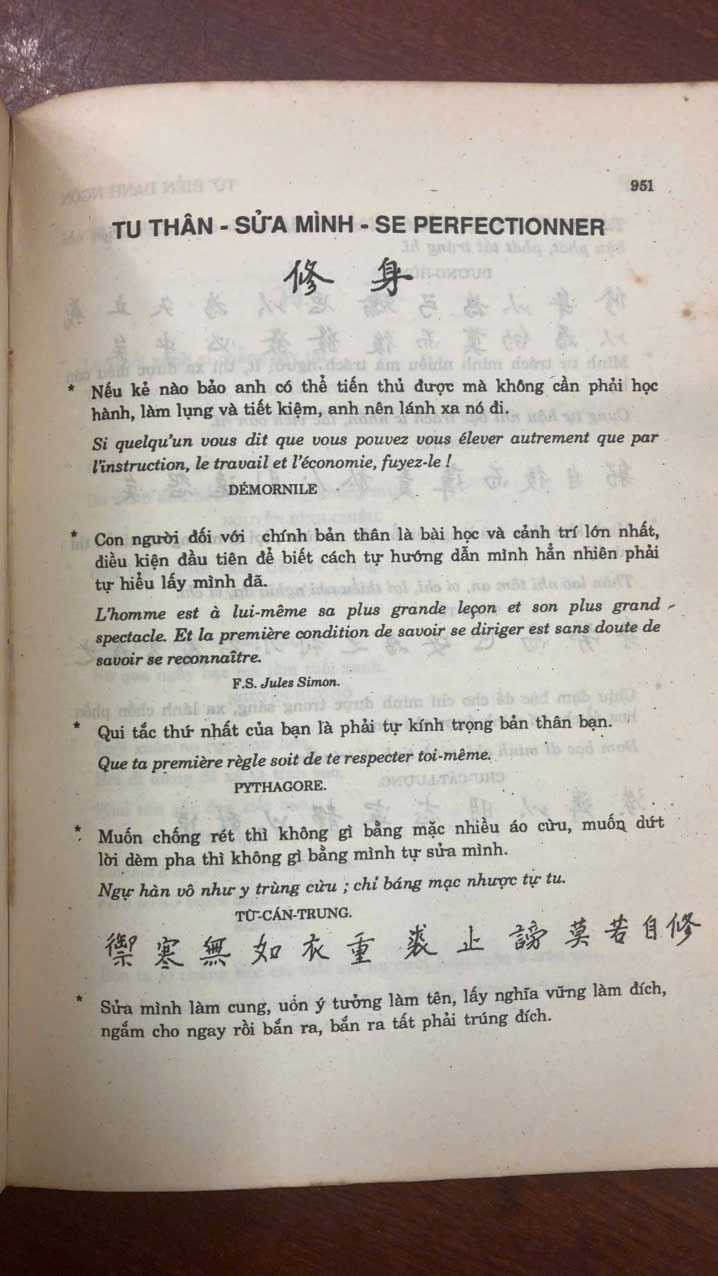 951
TU THÂN - SỬA MÌNH - SE PERFECTIONNER
修身
* Nếu kẻ nào bảo anh có thể tiến thủ được mà không cần phải học
hành, làm lụng và tiết kiệm, anh nên lánh xa nó đi.
Si quelqu'un vous dit que vous pouvez vous élever autrement que par
l'instruction, le travail et l'économie, fuyez-le !
DÉMORNILE
* Con người đối với chính bản thân là bài học và cảnh trí lớn nhất,
điều kiện đầu tiên để biết cách tự hướng dẫn mình hẳn nhiên phải
tự hiểu lấy mình đã.
L'homme est à lui-même sa plus grande leçon et son plus grand
spectacle. Et la première condition de savoir se diriger est sans doute de
savoir se reconnaître.
F.S. Jules Simon.
* Qui tắc thứ nhất của bạn là phải tự kính trọng bản thân bạn.
Que ta première règle soit de te respecter toi-même.
PYTHAGORE.
* Muốn chống rét thì không gì bằng mặc nhiều áo cừu, muốn dứt
lời dèm pha thì không gì bằng mình tự sửa mình.
Ngự hàn vô như y trùng cừu ; chỉ báng mạc nhược tự tu.
TỪ-CÁN-TRUNG.
禦寒無如衣重裘止謗莫若自修
* Sửa mình làm cung, uốn ý tưởng làm tên, lấy nghĩa vững làm đích,
ngắm cho ngay rồi bắn ra, bắn ra tất phải trúng đích.